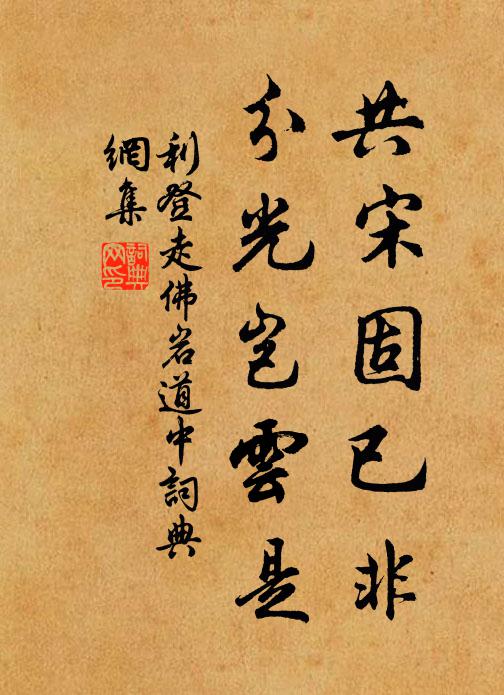 共宋固已非
分光岂雲是
利登走佛岩道中詞典
網集
詞典
网印